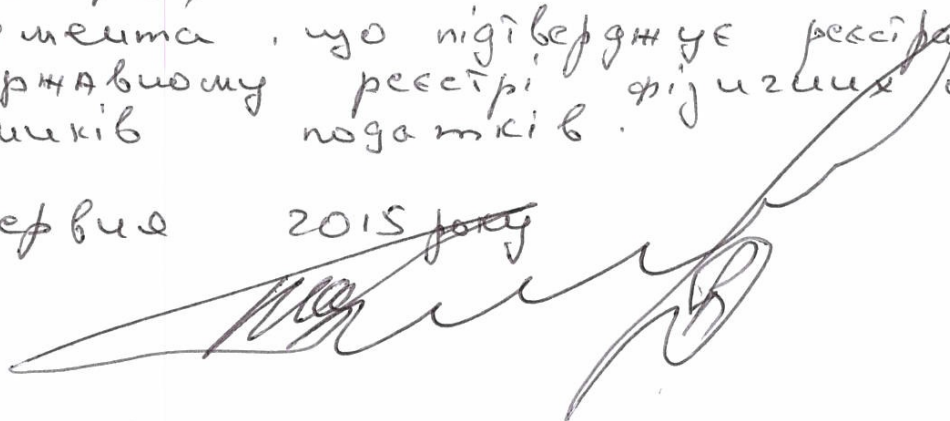 мента, що підтверджує реєстра
ржавному реєстрі фізичних
ників податків.
ервня 2015 року